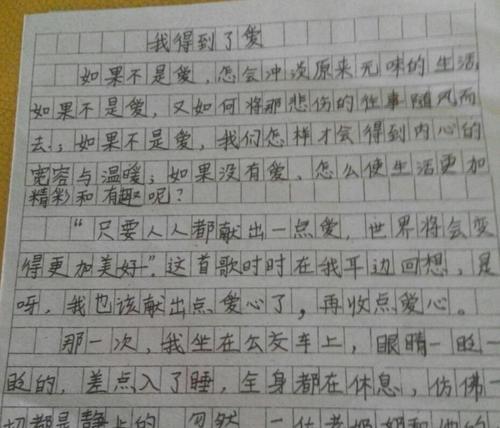 我得到了爱
如果不是爱,怎会冲淡原来无味的生活,
如果不是爱,又如何将那悲伤的往事随风而
去,;如果不是爱,我们怎样才会得到内心的
宽容与温暖;如果没有爱、怎么使生活更加
精彩和有趣呢?
“只要人人都献出一点爱,世界将会变
得更加美好”。这首歌时时在我耳边回想,是
呀,我也该献出点爱心了,再收点爱心。
那一次,我坐在公交车上,眼睛一眨一
眨的,差点入了睡,全身都在休息,仿佛
切都是静止的,忽然,一位老奶奶和她的